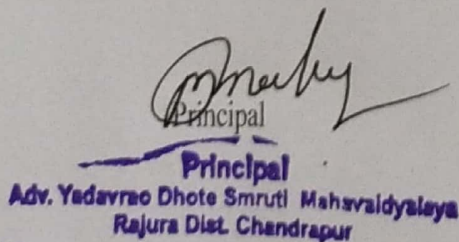 Principal
Principal
Adv. Yadavrao Dhote Smruti Mahavaidyalaya
Rajura Dist. Chandrapur